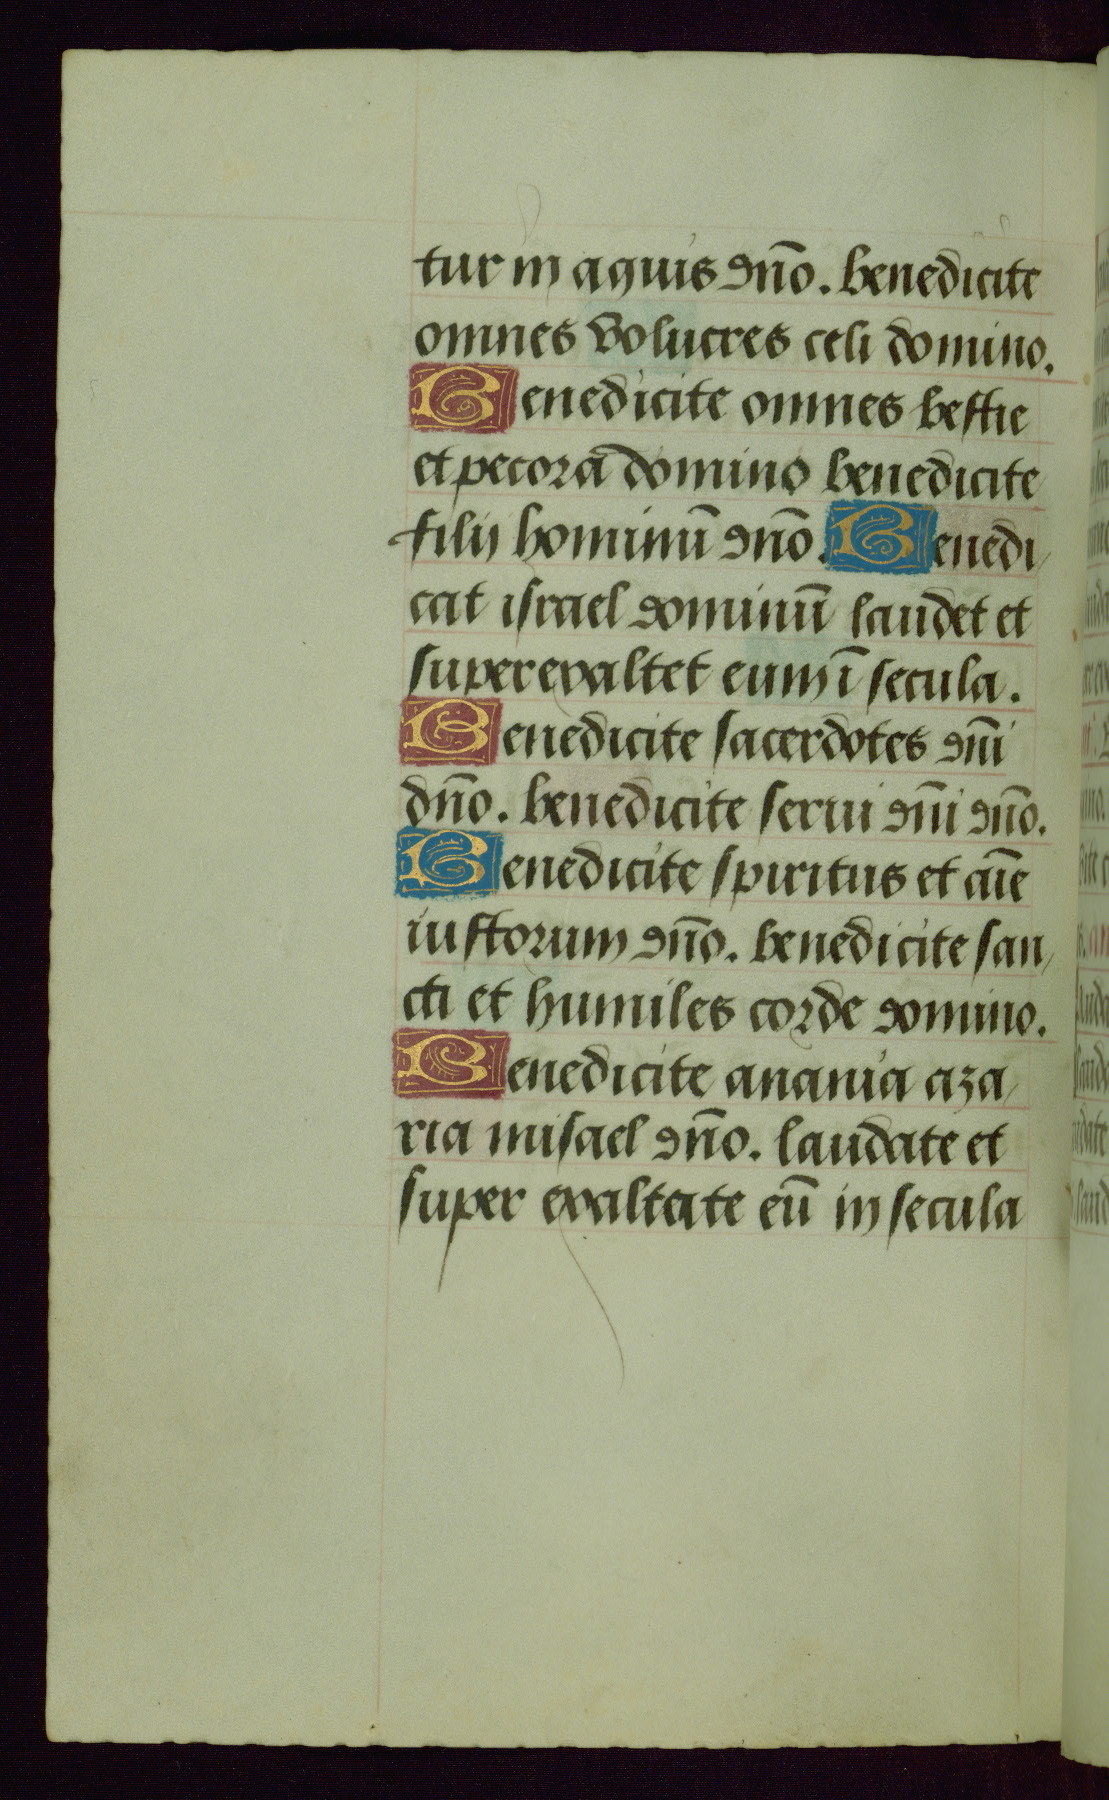 tur in aquis dn̄o. benedicite
omnes volucres celi domino.
Benedicite omnes bestie
et pecora domino benedicite
filij hominū dn̄o. Benedi
cat israel dominū laudet et
superexaltet eum ī secula.
Benedicite sacerdotes dn̄i
dn̄o. benedicite serui dn̄i dn̄o.
Benedicite spiritus et aīe
iustorum dn̄o. benedicite san
cti et humiles corde domino.
Benedicite anania aza
ria misael dn̄o. laudate et
super exaltate eū in secula